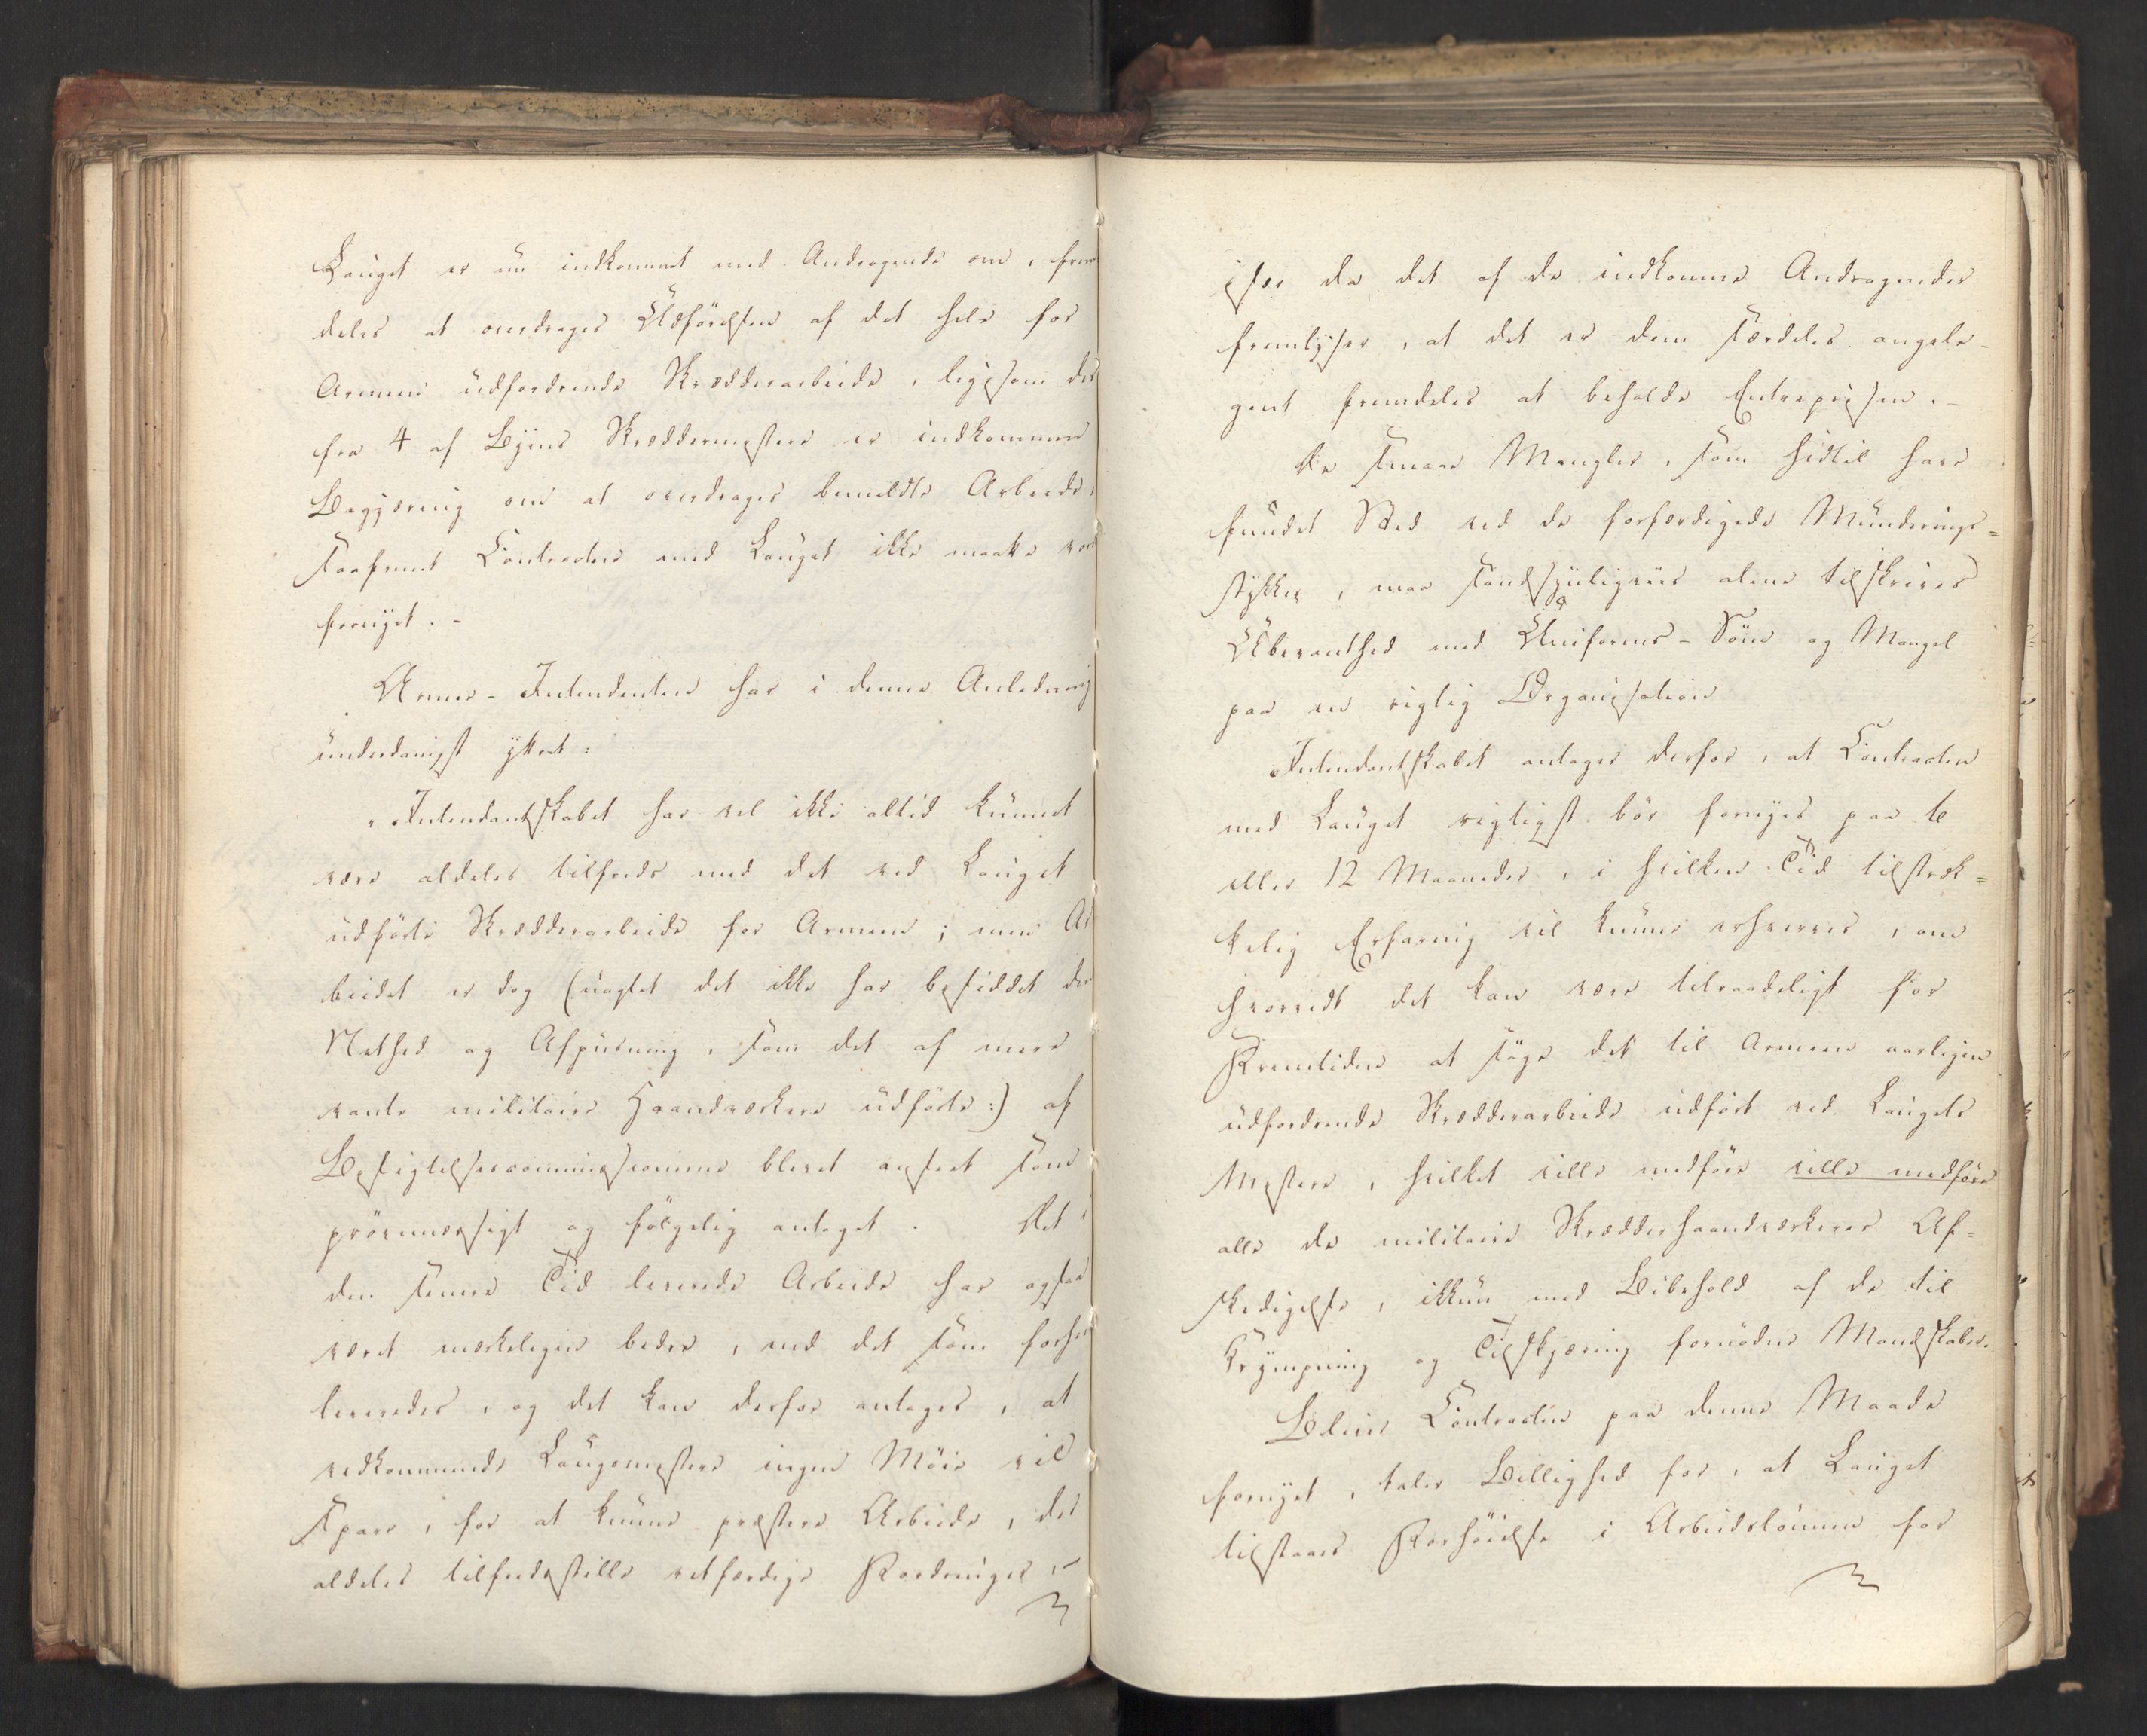 Lauget er nu indkommet med Andragende om, frem
deles at overdrages Udförelsen af det hele for
Armeen udfordrende Skrædderarbeide, ligesom der
fra 4 af Byens Skræddermestere er indkommen
Begjæring om at overdrages bemeldte Arbeide,
saafremt Contracten med Lauget ikke maatte vorde
fornyet. -
Armee-Intendenten har i denne Anledning
underdanigst yttret:
"Intendantskabet har vel ikke altid kunnet
være aldeles tilfreds med det ved Lauget
udförte Skrædderarbeide for Armeen; men Ar
beidet er dog (uagtet det ikke har besiddet den
Nethed og Afpudsning, som det af mere
vante militaire Haandværkere udförte:) af
Besigtelsescommissionerne blevet anseet som
prövemæssigt og fölgelig antaget. Det i
den senere Tid leverede Arbeide har ogsaa
været mærkeligen bedre, end det som forhen
leveredes, og det kan derfor antages, at
vedkommende Laugsmestere ingen Möie vil
spare, for at kunne præstere Arbeide, der
aldeles tilfredsstille retfærdige Fordringer, -
især da det af de indkomne Andragender
fremlyser, at det er dem særdeles angele-
gent fremdeles at beholde Entreprisen. -
De smaae Mangler, som hidtil have
fundet Sted ved de forfærdigede Munderings=
stykker, maa sandsynligviis alene tilskrives
Ubevanthed med Uniforms-Söm og Mangel
paa en rigtig Organisation
Intendantskabet antager derfor, at Contracten
med Lauget rigtigst bör fornyes paa 6
eller 12 Maaneder, i hvilken Tid tilstræk=
kelig Erfaring vil kunne erhverves, om
hvorvidt det kan være tilraadeligt for
Fremtiden at söge det til Armeen aarligen
udfordrende Skrædderarbeide udfört ved Laugets
Mestere, hvilket ville medföre ville medföre
alle de militaire Skrædderhaandværkeres Af=
skedigelse, ikkun med Bibehold af de til
Krympning og Tilskjæring fornödne Mandskaber.
Bliver Contracten paa denne Maade
fornyet, taler Billighed for, at Lauget
tilstaaes Forhöielse i Arbeidslönnen for